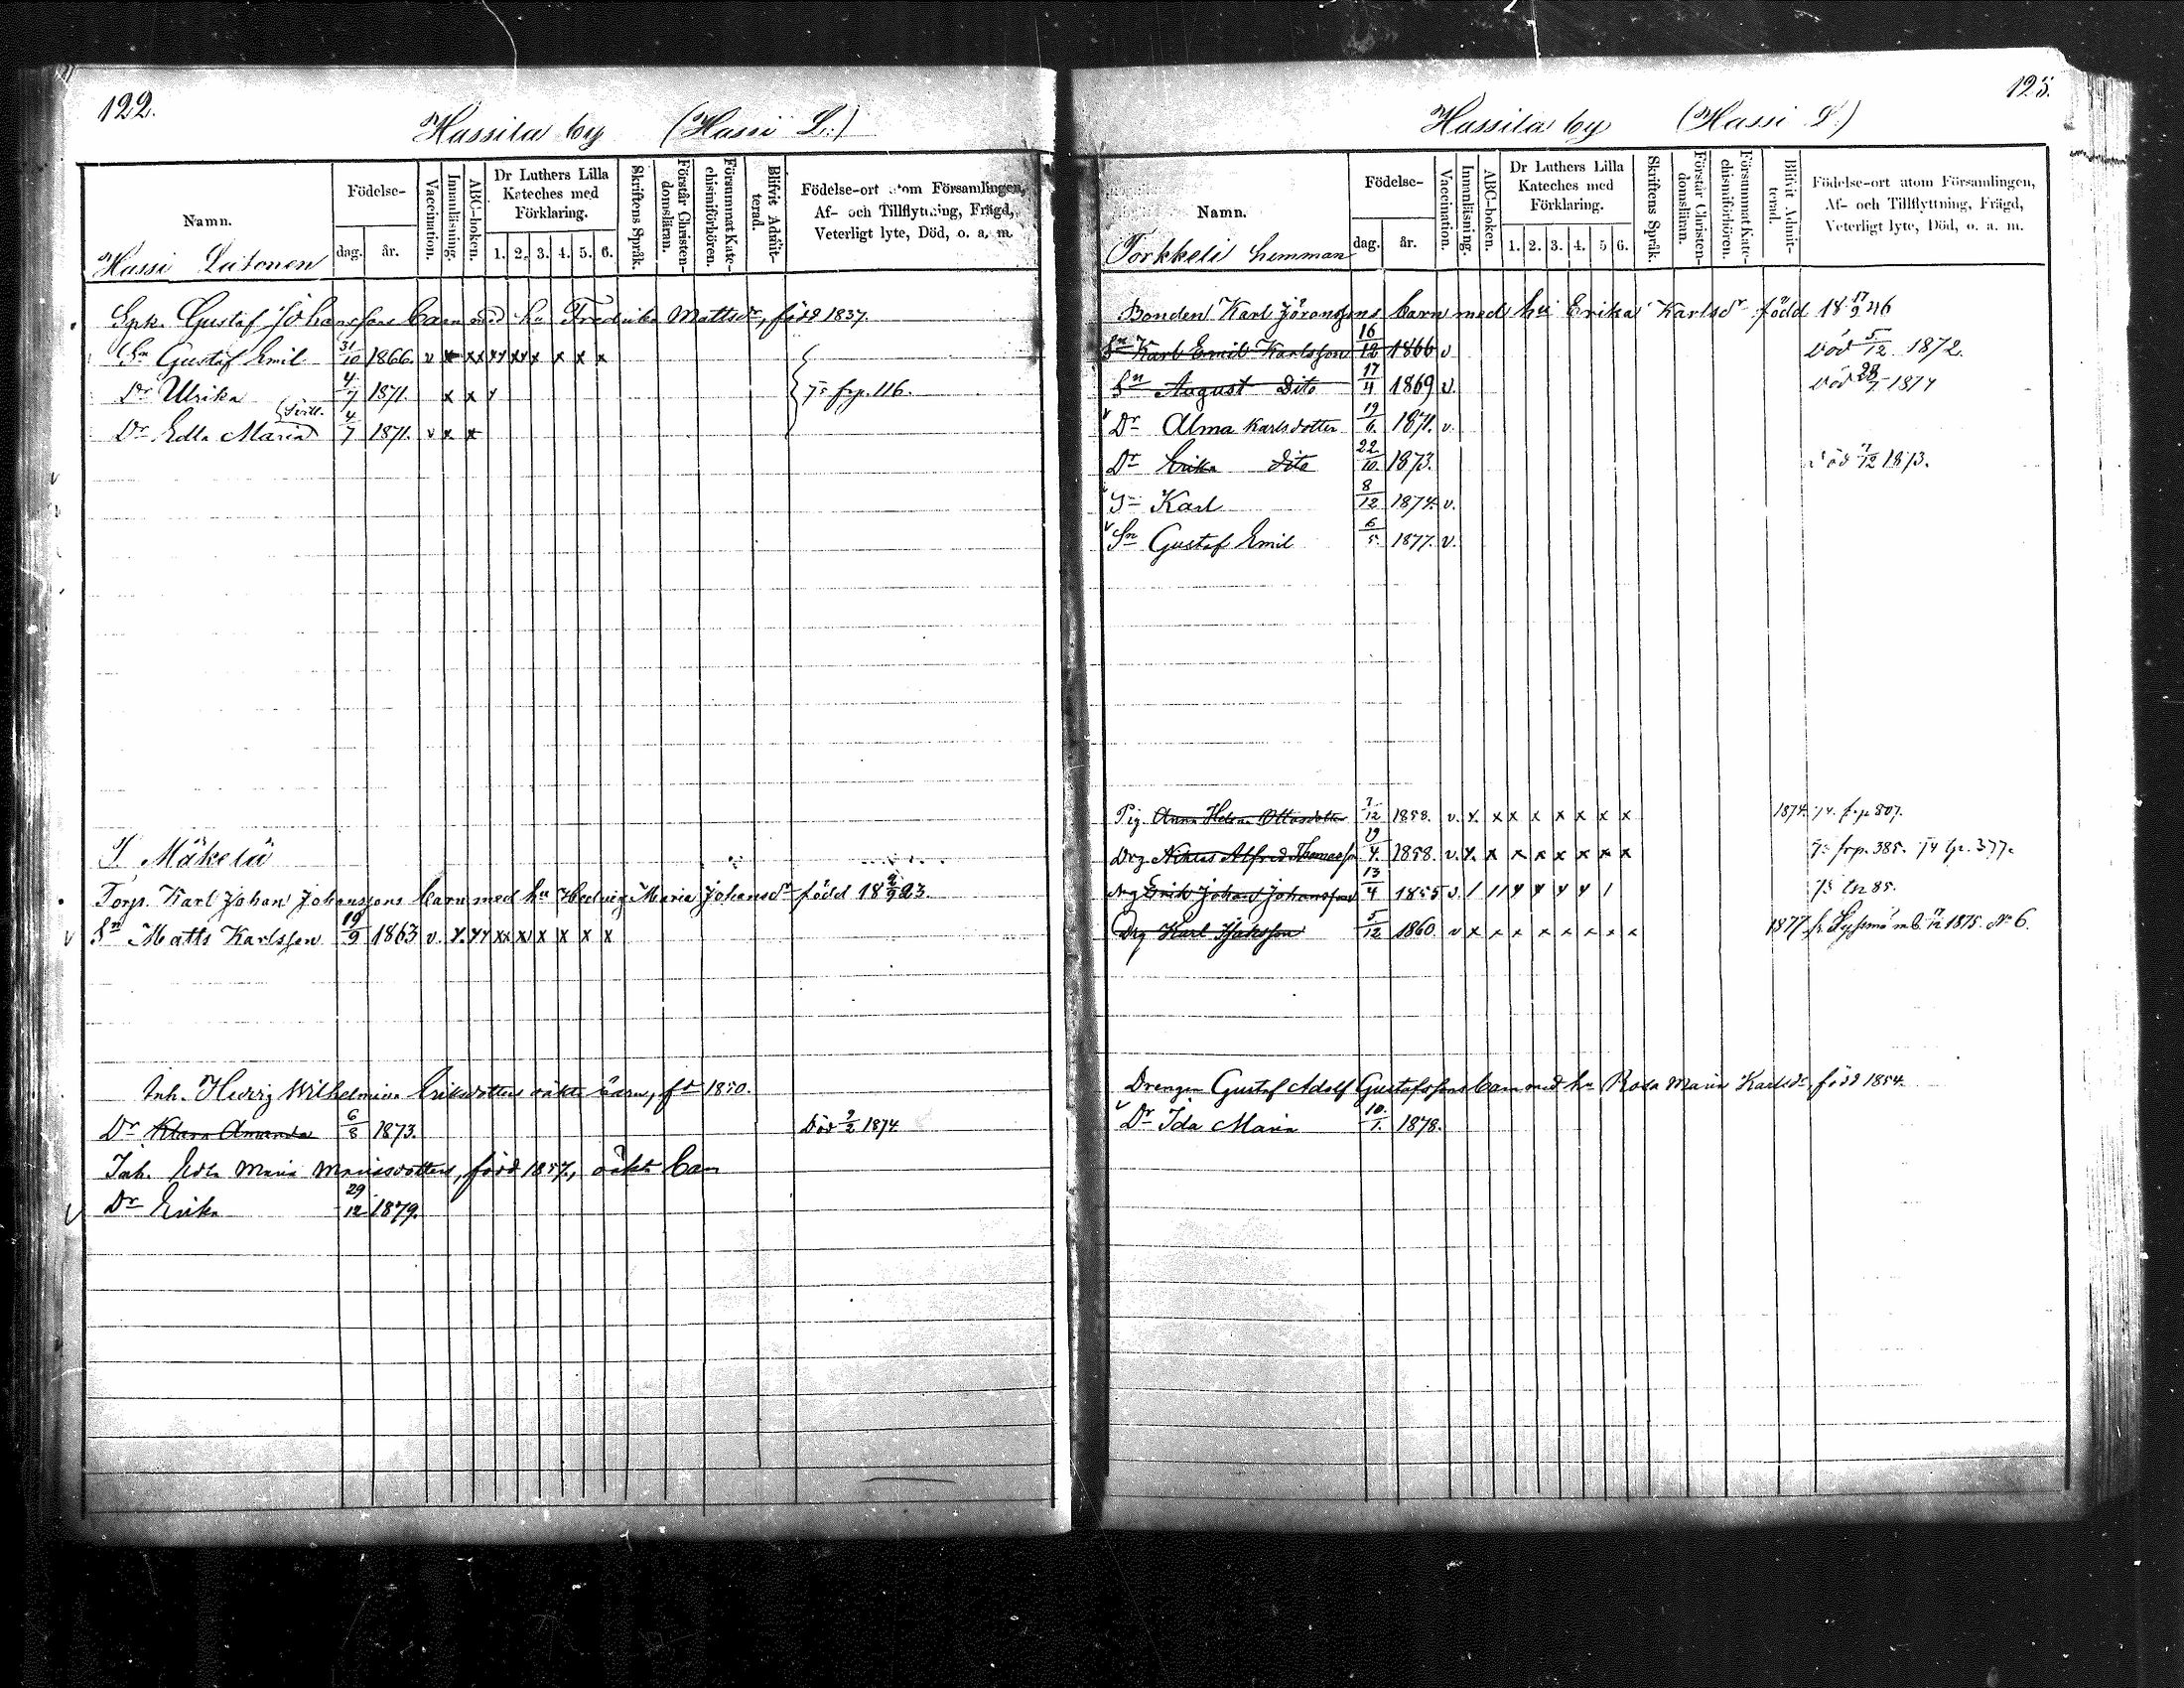 122.
Hassila by (Hassi L.)
Namn.
Födelse-
dag. år.
Vaccination.
Innanläsning.
ABC-boken.
Dr Luthers Lilla Kateches med Förklaring.
1. 2. 3. 4. 5. 6.
Skriftens Språk.
Förstår Christen-domsläran.
Försummat Kate-chismiförhören.
Blifvit Admit-terad.
Födelse-ort utom Församlingen,
Af- och Tillflyttning, Frägd,
Veterligt lyte, Död, o. a. m.
Hassi
Gustaf Johanssons barn med hu Fredrika Mattsdr, född 1837.
Sn Gustaf Emil 31/10 1866. v x xx xx xx x x x x
Dr Ulrika 4/7 1871. x x x frp. 116.
Dr Edla Maria 4/7 1871. v x x
Mäkelä
Torp. Karl Johan Johanssons barn med hu Hedvig Maria Johansdr född 18 9/9 23.
Sn Matts Karlsson 19/9 1863 v. x. xx xx xx x x x x
Inh. Hedvig Wilhelmina Eriksdotters oäkta barn, fd 1850.
Dr Klara Amanda 6/8 1873. Död 2/2 1874
Inh. Edla Maria Mariasdotters, född 1857, oäkta barn
Dr Erika 29/12 1879.
123.
Hassila by (Hassi L.)
Namn.
Födelse-
dag. år.
Vaccination.
Innanläsning.
ABC-boken.
Dr Luthers Lilla Kateches med Förklaring.
1. 2. 3. 4. 5 6.
Skriftens Språk.
Förstår Christen-domsläran.
Försummat Kate-chismiförhören.
Blivit Admit-terad.
Födelse-ort utom Församlingen,
Af- och Tillflyttning, Frägd,
Veterligt lyte, Död, o. a. m.
Torkkeli hemman
Bonden Karl Jöranssons barn med hu Erika Karlsdr född 18 17/9 46
Sn Karl Emil Karlsson 16/12 1866 v Död 5/12 1872.
Sn August Dito 17/4 1869 v. Död 28/7 1874
Dr Alma Karlsdotter 19/6. 1871. v.
Dr Erika dito 22/10. 1873. Död 7/12 1873.
Sn Karl 8/12 1874. v.
Sn Gustaf Emil 6/5. 1877. v.
Pig. Anna Helena Ottosdotter 7/12 1858. v. x. x x x x x x x 1874. 74. frp 807.
Drg Niklas Alfred Thomasson 19/4. 1858. v. x. x x x x x x x frp. 385. 74 377.
Drg Erik Johan Johansson 13/4 1855 v. 85.
Drg Karl 5/12 1860. v x x x x x x x x 1877 1875. No 6.
Drengen Gustaf Adolf Gustafssons barn med hu Rosa Maria Karlsdr, född 1854.
Dr Ida Maria 10./1. 1878.